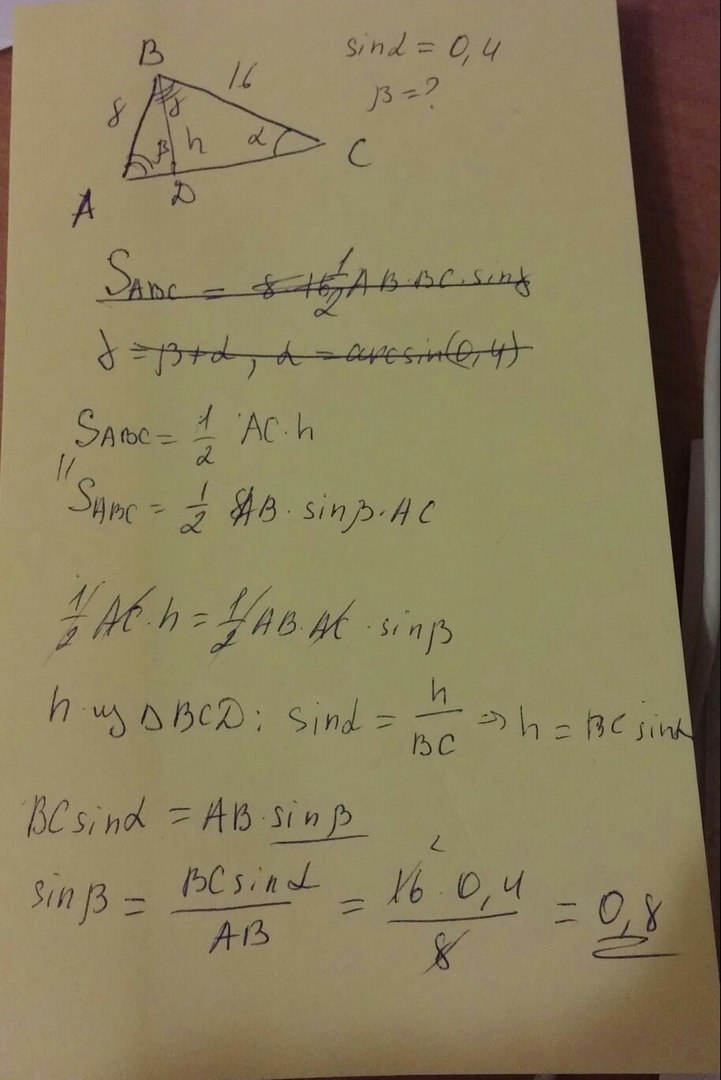 B
16
sinα = 0,4
8
γ
β = ?
β
h
α
C
A
D
S_ABC = 8 · 16 1/2 AB·BC·sinγ
γ = β + α, α = arcsin(0,4)
S_ABC = 1/2 AC·h
||
S_ABC = 1/2 AB · sinβ · AC
1/2 AC · h = 1/2 AB · AC · sinβ
h из Δ BCD: sinα = h/BC ⇒ h = BC sinα
BC sinα = AB · sinβ
sinβ = BC sinα / AB = 16 2 · 0,4 / 8 = 0,8